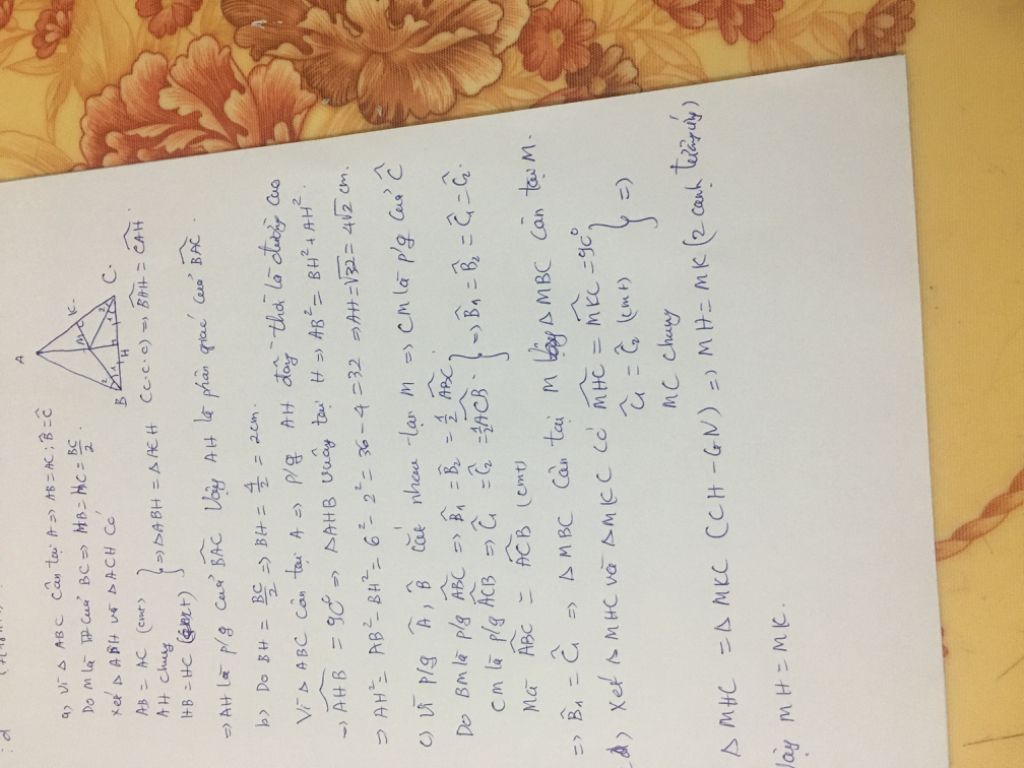 : d
A
M
K
B
H
C.
a) Vì Δ ABC cân tại A => AB = AC ; B̂ = Ĉ
Do M là TĐ của BC => HB = HC = BC/2.
Xét Δ ABH và Δ ACH Có
AB = AC (cmt)
AH chung } => ΔABH = ΔACH (C.C.C) => BAH^ = CAH^
HB = HC (cmt)
=> AH là p/g của BAC^ Vậy AH là phân giác của BAC^
b) Do BH = BC/2 => BH = 4/2 = 2cm.
Vì Δ ABC cân tại A => p/g AH đồng thời là đường cao
=> AHB^ = 90° => ΔAHB vuông tại H => AB² = BH² + AH².
=> AH² = AB² - BH² = 6² - 2² = 36 - 4 = 32 => AH = √32 = 4√2 cm.
c) Vì p/g Â, B̂ cắt nhau tại M => CM là p/g của Ĉ
Do BM là p/g ABC^ => B̂1 = B̂2 = 1/2 ABC^.
CM là p/g ACB^ => Ĉ1 = Ĉ2 = 1/2 ACB^. } => B̂1 = B̂2 = Ĉ1 = Ĉ2.
Mà ABC^ = ACB^ (cmt)
=> B̂1 = Ĉ1 => Δ MBC cân tại M Vậy Δ MBC cân tại M.
d) Xét Δ MHC và Δ MKC Có MHC^ = MKC^ = 90°
Ĉ1 = Ĉ2 (cmt) } =>
MC chung
Δ MHC = Δ MKC (CH - GN) => MH = MK (2 cạnh tương ứng)
Vậy MH = MK.